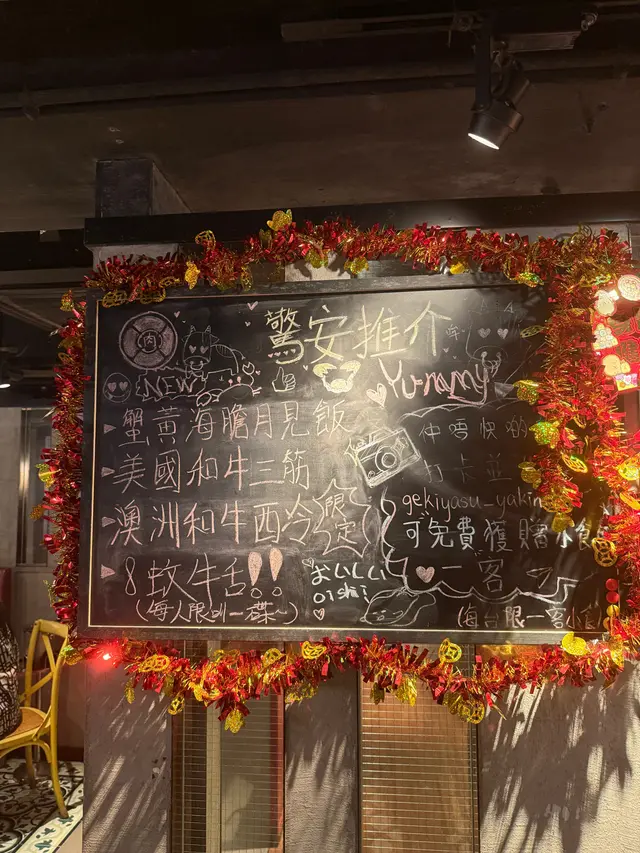 肉
驚安推介
NEW
Yummy
蟹黃海膽月見飯
美國和牛三筋
澳洲和牛西冷
限定
8蚊牛舌!!
(每人限叫一碟~)
おいしい
oishi
仲唔快啲
打卡並
gekiyasu_yakin
可免費獲贈小食
一客
(每台限一客小食